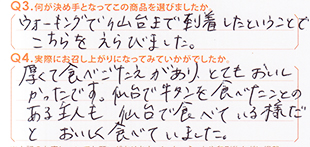 Q3.何が決め手となってこの商品を選びましたか
ウォーキングで仙台まで到着したということで
こちらを えらびました。
Q4.実際にお召し上がりになってみていかがでしたか。
厚くて食べごたえがあり、とてもおいし
かったです。仙台で牛タンを食べたことの
ある主人も 仙台で食べている様だ
と おいしく食べていました。